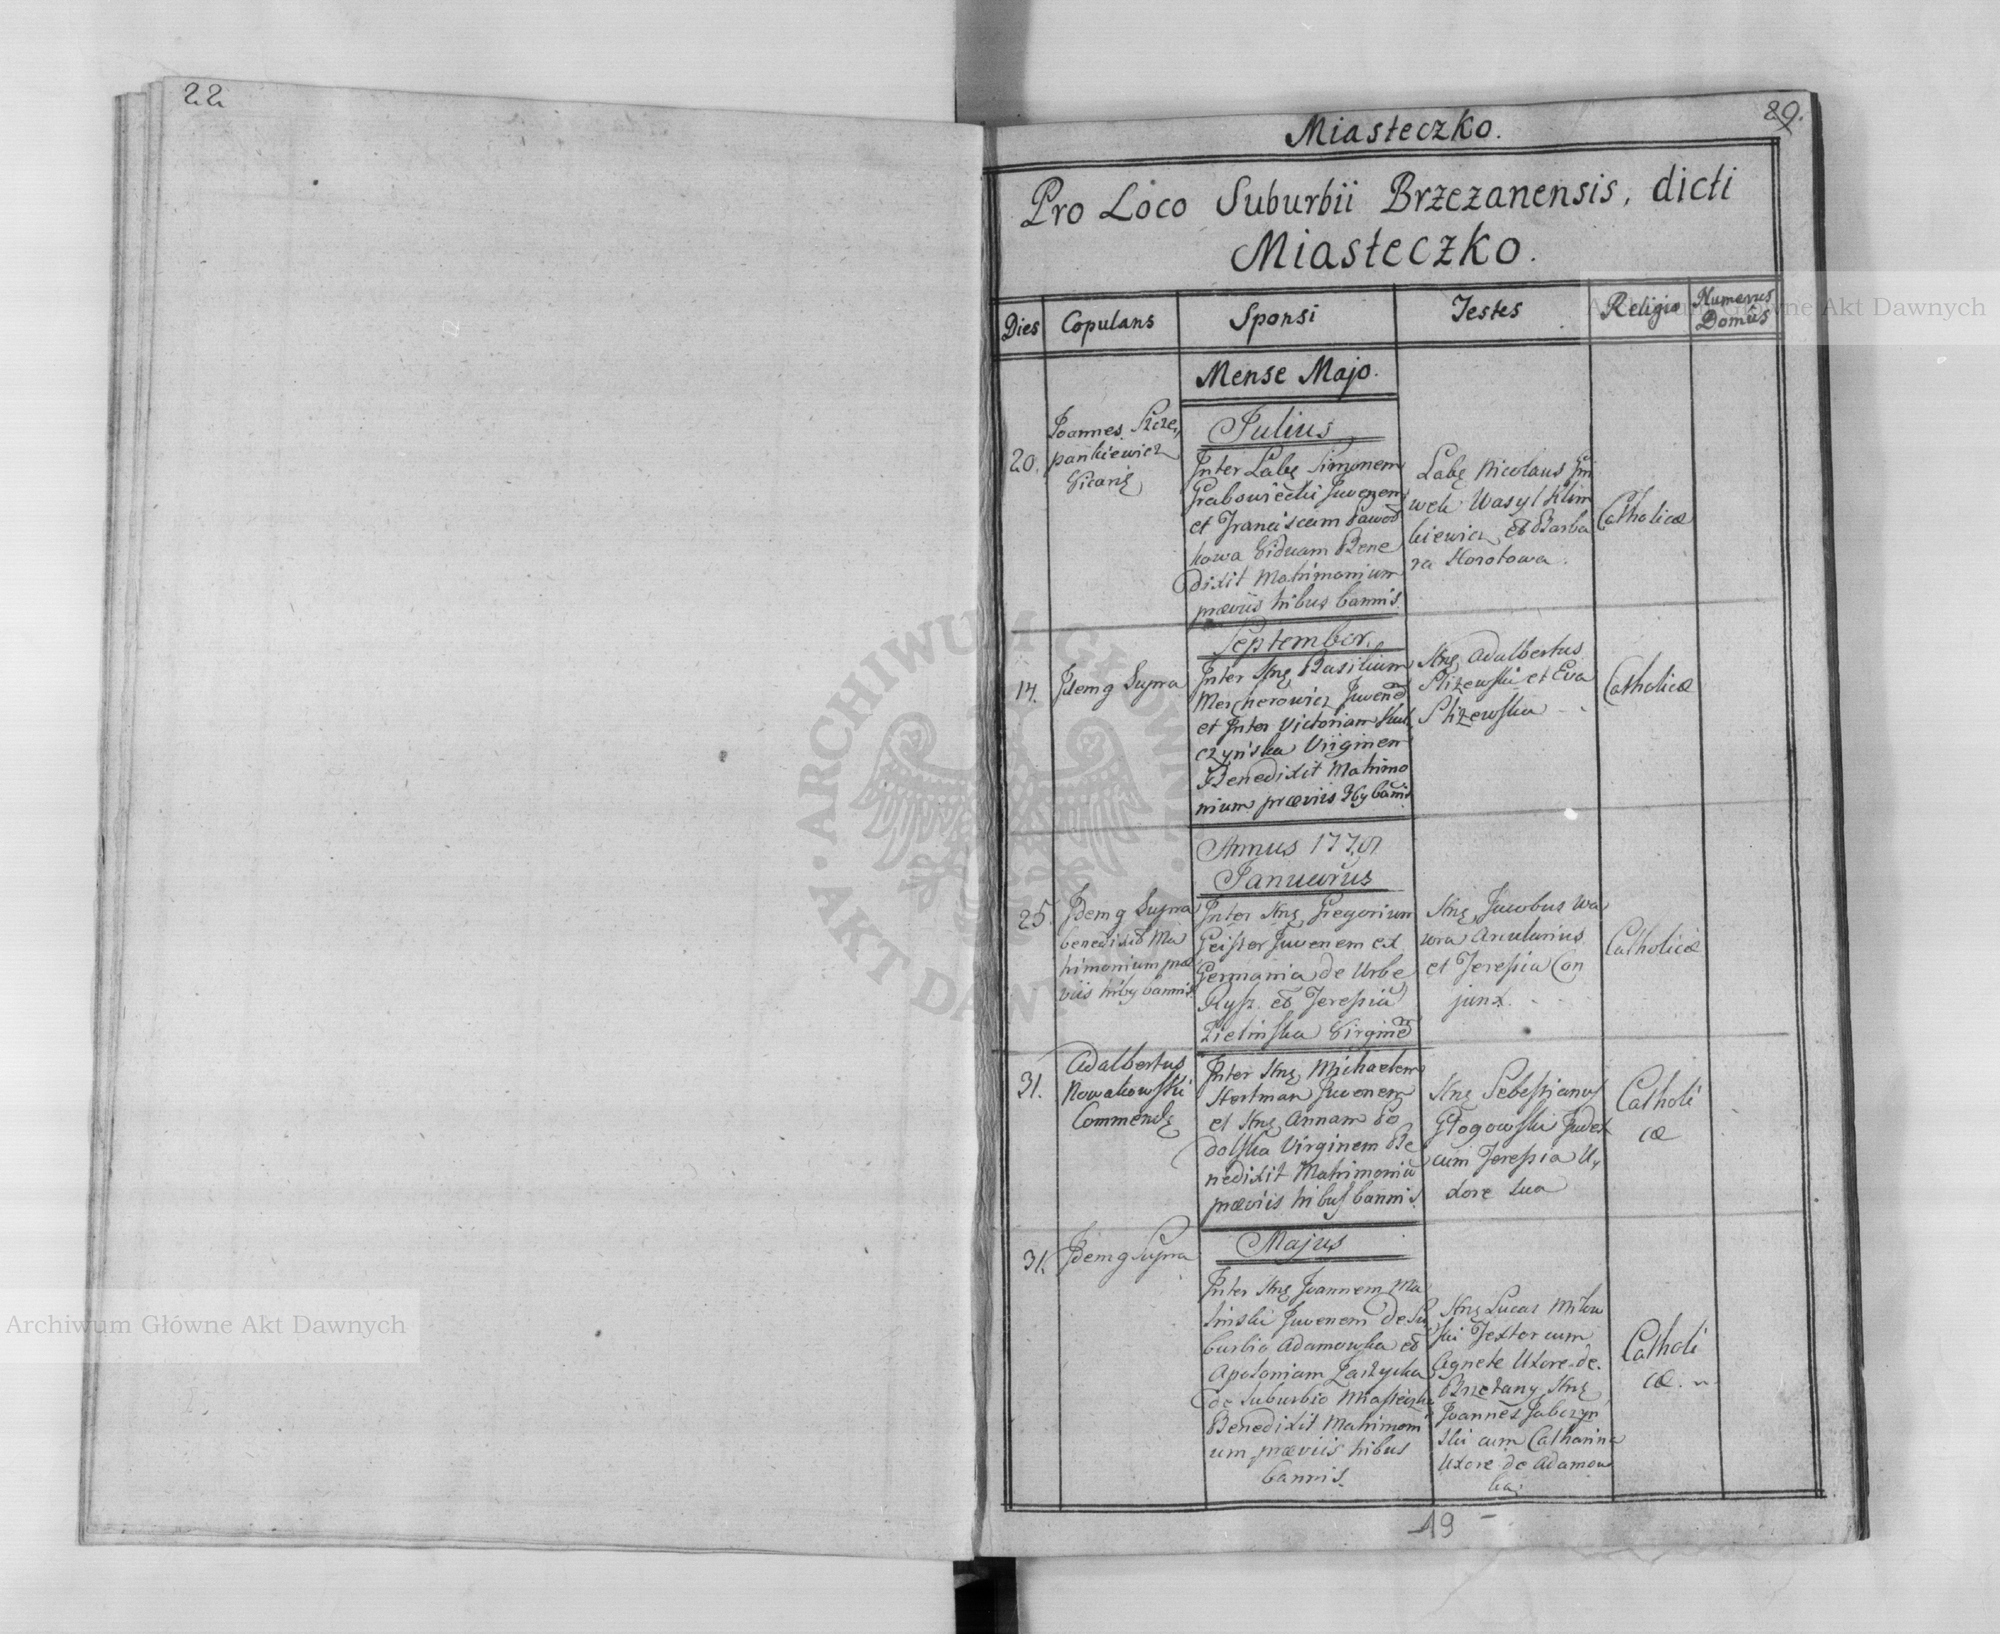 22
29.
Miasteczko.
Pro Loco Suburbii Brzezanensis, dicti
Miasteczko.
Dies
Copulans
Sponsi
Testes
Religio
Numerus
Domûs
Mense Majo.
Julius
20.
Joannes Szcze,
pankiewicz
Vicari9
Inter Lab9 Simonem
Grabowiecki Juvenem
et Franciscam
kowa Viduam Bene
dixit Matrimonium
præviis tribus bannis.
Lab9 Nicolaus
Wasyl Klim
kiewicz et Barba
ra Korotowa.
Catholicæ
September.
14.
Idem q Supra
Inter Hn9 Basilium
Mercherowicz Juvenē
et Inter Victoriam
czyńska Virginem
Benedixit Matrimo
nium præviis 3by bannis
Hn9 Adalbertus
Pliżewski et Eva
Pliżewska
Catholicæ
Annus
Januarius
25.
Idem q Supra
benedixit Ma
trimonium præ
viis triby bannis
Inter Hn9 Gregorium
Geisler Juvenem ex
Germania de Urbe
et Teressiā
Zielinska Virginē
Hn9 Jacobus Wa
wra
et Teressia Con
junx.
Catholicæ
31.
Adalbertus
Nowakowski
Commend9
Inter Hn9 Michaelem
Hertman Juvenem
et Hn9 Annam Po
dolska Virginem Be
nedixit Matrimoniū
præviis tribus bannis.
Hn9 Sebestianus
Głogowski Judex
cum Teressia U,
xore sua
Catholi
cæ
Majus
31.
Idem q Supra
Inter Hn9 Joannem Ma
linski Juvenem de Su
burbio Adamowka et
Apoloniam Zarzycka
de Suburbio Miasteczko
Benedixit Matrimoni
um præviis tribus
bannis.
Hn9 Lucas Mitow
ski Textor cum
Agnete Uxore de
Brzeżany Hn9
Joannes Jabczyn
ski cum Catharina
Uxore de Adamow
ka.
Catholi
cæ.
19
Archiwum Główne Akt Dawnych
Archiwum Główne Akt Dawnych
ARCHIWUM GŁÓWNE AKT DAWNYCH